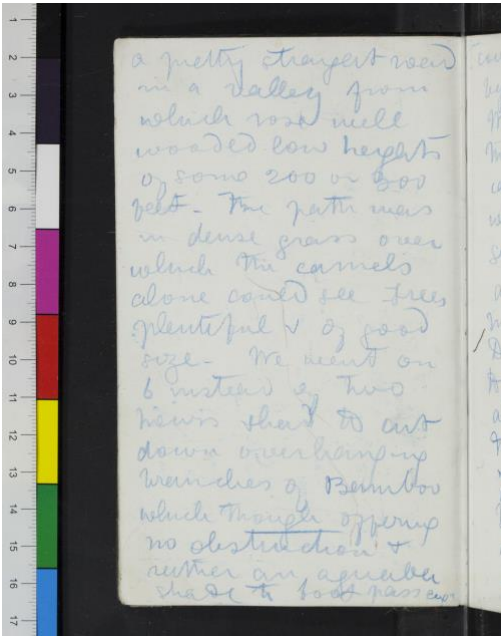 a pretty straight road
in a valley from
which rose well
wooded low heights
of some 200 or 300
feet - The path was
in dense grass over
which the camels
alone could see Trees
plentiful & of good
size - We went on
6 instead of two
hours & had to cut
down overhanging
branches of Bamboo
which though offering
no obstruction &
rather an agreeable
shade to foot passengers